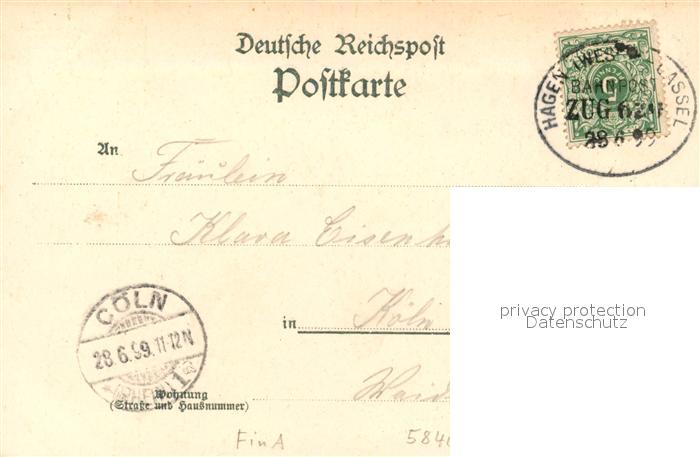 Deutsche Reichspost
Postkarte
HAGEN (WESTF CASSEL
BAHNPOST
ZUG
28 6 99
An Fräulein
Klara
in Köln
CÖLN
28.6.99.11-12N
Wohnung
(Straße und Hausnummer)
FinA
privacy protection
Datenschutz